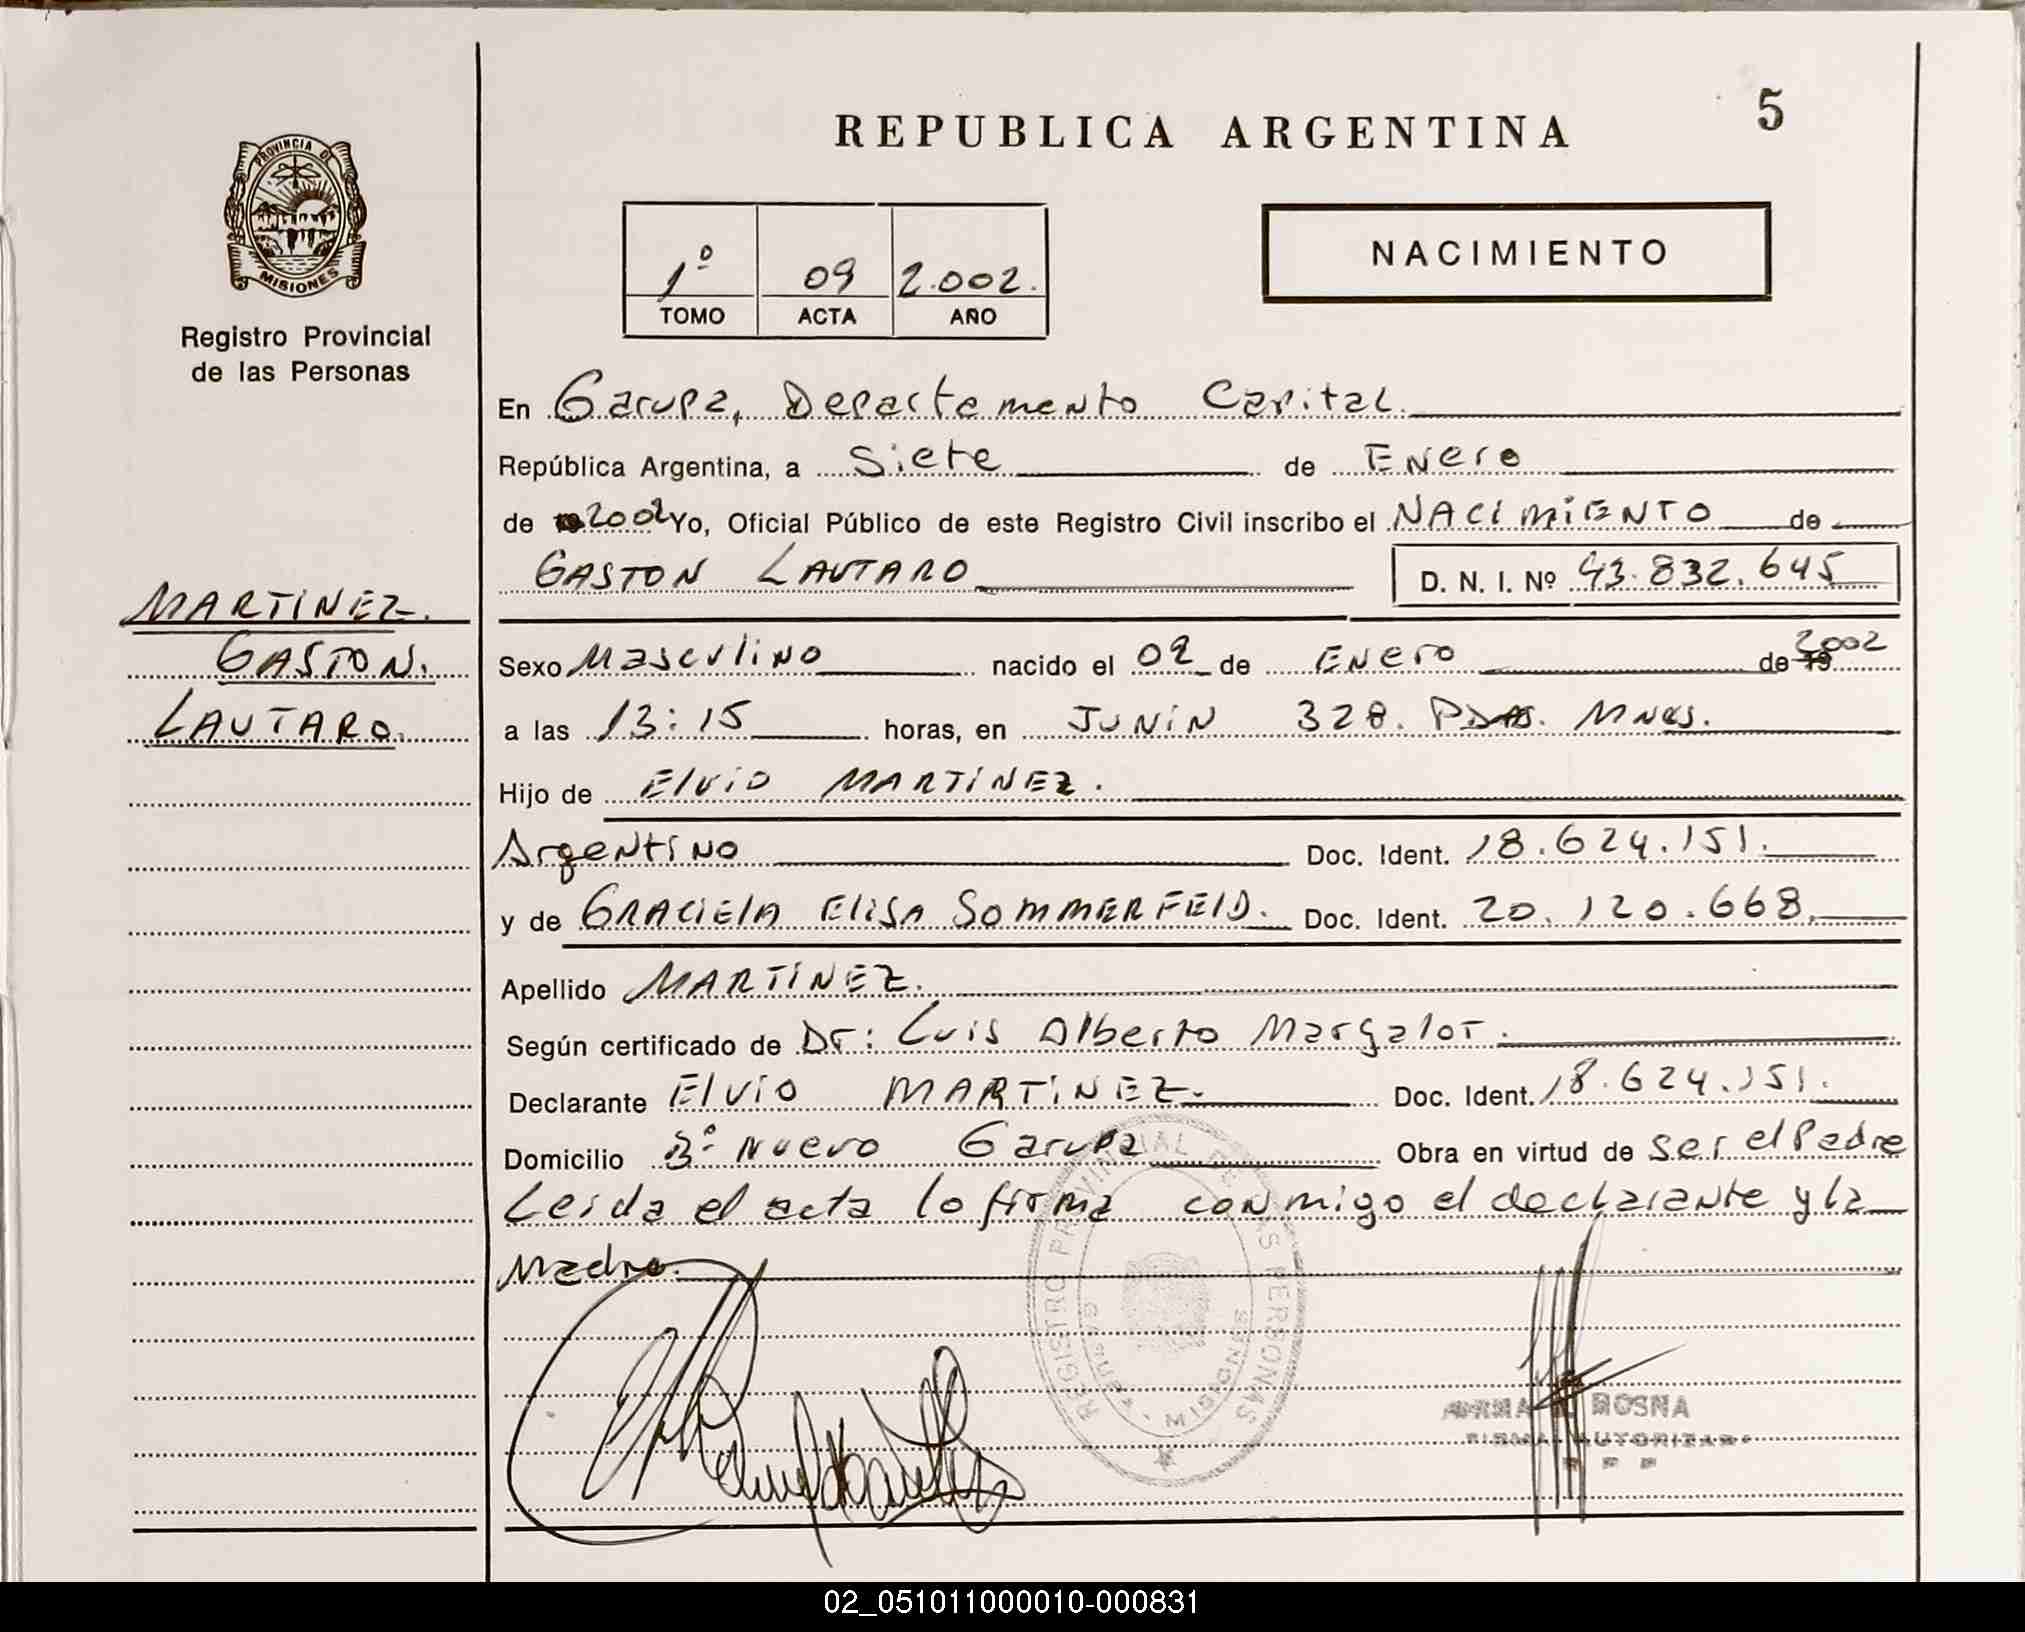 REPUBLICA ARGENTINA
5
PROVINCIA DE
MISIONES
Registro Provincial
de las Personas
1º 09 2.002.
TOMO ACTA AÑO
NACIMIENTO
En Garupa, Departamento Capital.
República Argentina, a Siete de Enero
de 2002 Yo, Oficial Público de este Registro Civil inscribo el NACIMIENTO de
GASTON LAUTARO D. N. I. Nº 43.832.645
MARTINEZ.
GASTON.
LAUTARO.
Sexo Masculino nacido el 02 de Enero de 19 2002
a las 13:15 horas, en JUNIN 328. PDAS. MNES.
Hijo de Elvio MARTINEZ.
Argentino Doc. Ident. 18.624.151.
y de GRACIELA ELISA SOMMERFELD. Doc. Ident. 20.120.668.
Apellido MARTINEZ.
Según certificado de Dr: Luis Alberto Margalot.
Declarante Elvio MARTINEZ. Doc. Ident. 18.624.151.
Domicilio Bº Nuevo Garupa Obra en virtud de ser el Padre
Leida el acta lo firma conmigo el declarante y la
Madre.
REGISTRO PROVINCIAL DE LAS PERSONAS
MISIONES
ROSNA
AUTORIZADA
02_051011000010-000831